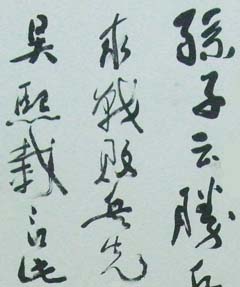 孫子云勝兵
求戰敗兵先
吳熙載